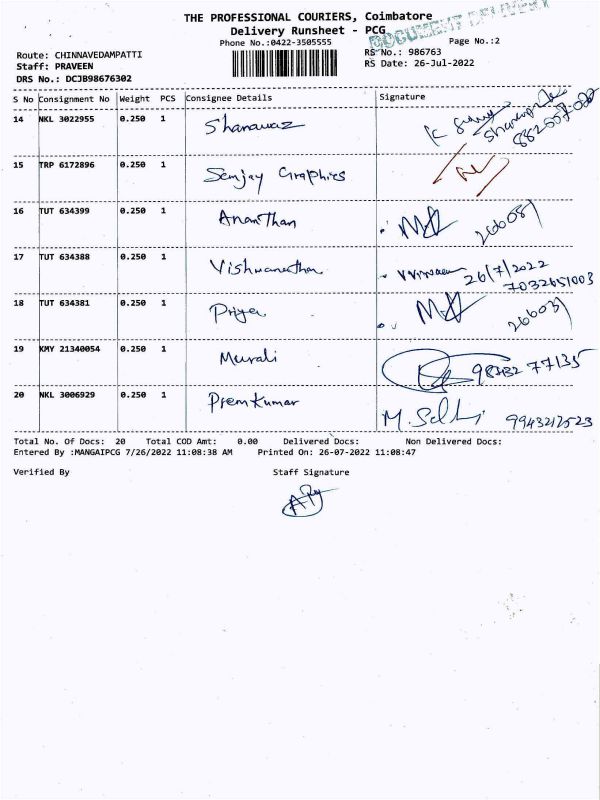 THE PROFESSIONAL COURIERS, Coimbatore
Delivery Runsheet - PCG
DOCUMENT DELIVERY
Phone No.:0422-3505555
Page No.:2
Route: CHINNAVEDAMPATTI
RS No.: 986763
Staff: PRAVEEN
RS Date: 26-Jul-2022
DRS No.: DCJB98676302
S No Consignment No Weight PCS Consignee Details Signature
14 NKL 3022955 0.250 1 Shanawaz
15 TRP 6172896 0.250 1 Sanjay Graphics
16 TUT 634399 0.250 1 Ananthan
17 TUT 634388 0.250 1 Vishwanathan 26/7/2022
7032651003
18 TUT 634381 0.250 1 Priya
19 KMY 21340054 0.250 1 Murali 77135
20 NKL 3006929 0.250 1 Premkumar 9943212523
Total No. Of Docs: 20 Total COD Amt: 0.00 Delivered Docs: Non Delivered Docs:
Entered By :MANGAIPCG 7/26/2022 11:08:38 AM Printed On: 26-07-2022 11:08:47
Verified By Staff Signature